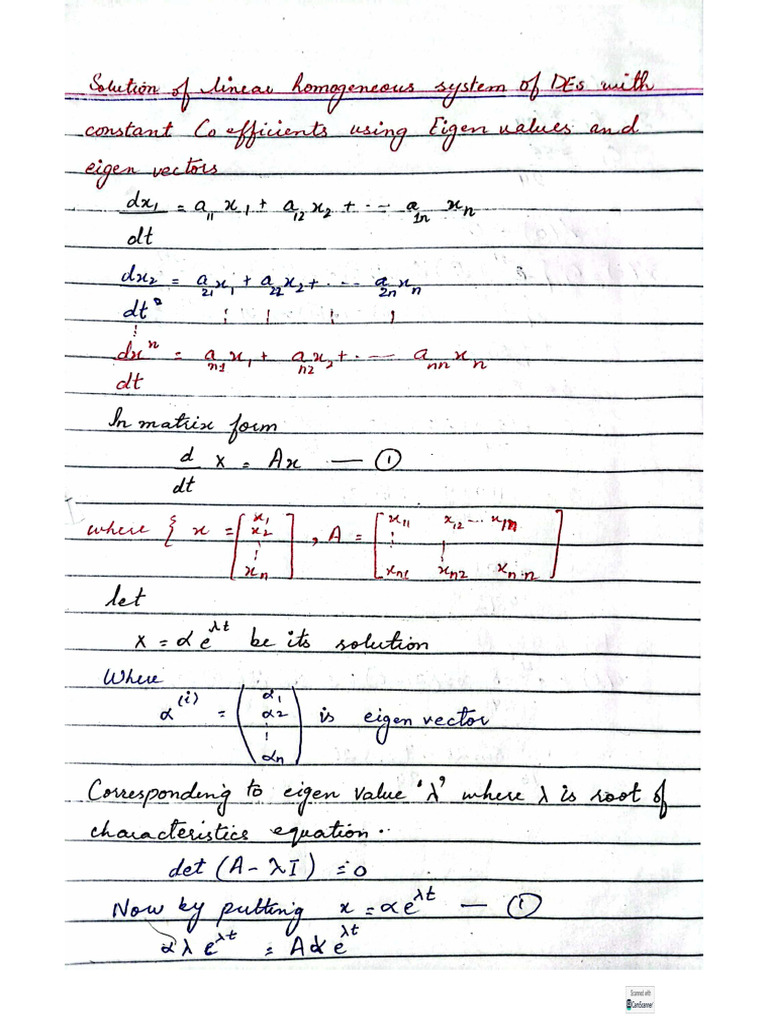 Solution of linear homogeneous system of DEs with
constant Co efficients using Eigen values and
eigen vectors
dx₁/dt = a₁₁ x₁ + a₁₂ x₂ + ... a₁ₙ xₙ
dx₂/dt = a₂₁ x₁ + a₂₂ x₂ + ... a₂ₙ xₙ
⋮ ⋮ ⋮ ⋮ ⋮
dxⁿ/dt = aₙ₁ x₁ + aₙ₂ x₂ + ... aₙₙ xₙ
In matrix form
d/dt X = Ax — ①
where { x = [x₁ x₂ ⋮ xₙ], A = [x₁₁ x₁₂ ... x₁ₙ ⋮ ⋮ xₙ₁ xₙ₂ xₙ.ₙ]
let
X = αe^λt be its solution
Where
α⁽ⁱ⁾ = (α₁ α₂ ⋮ αₙ) is eigen vector
Corresponding to eigen value 'λ' where λ is root of
characteristics equation..
det (A - λI) = 0
Now by putting x = αe^λt — ①
αλ e^λt = Aαe^λt
Scanned with
CamScanner